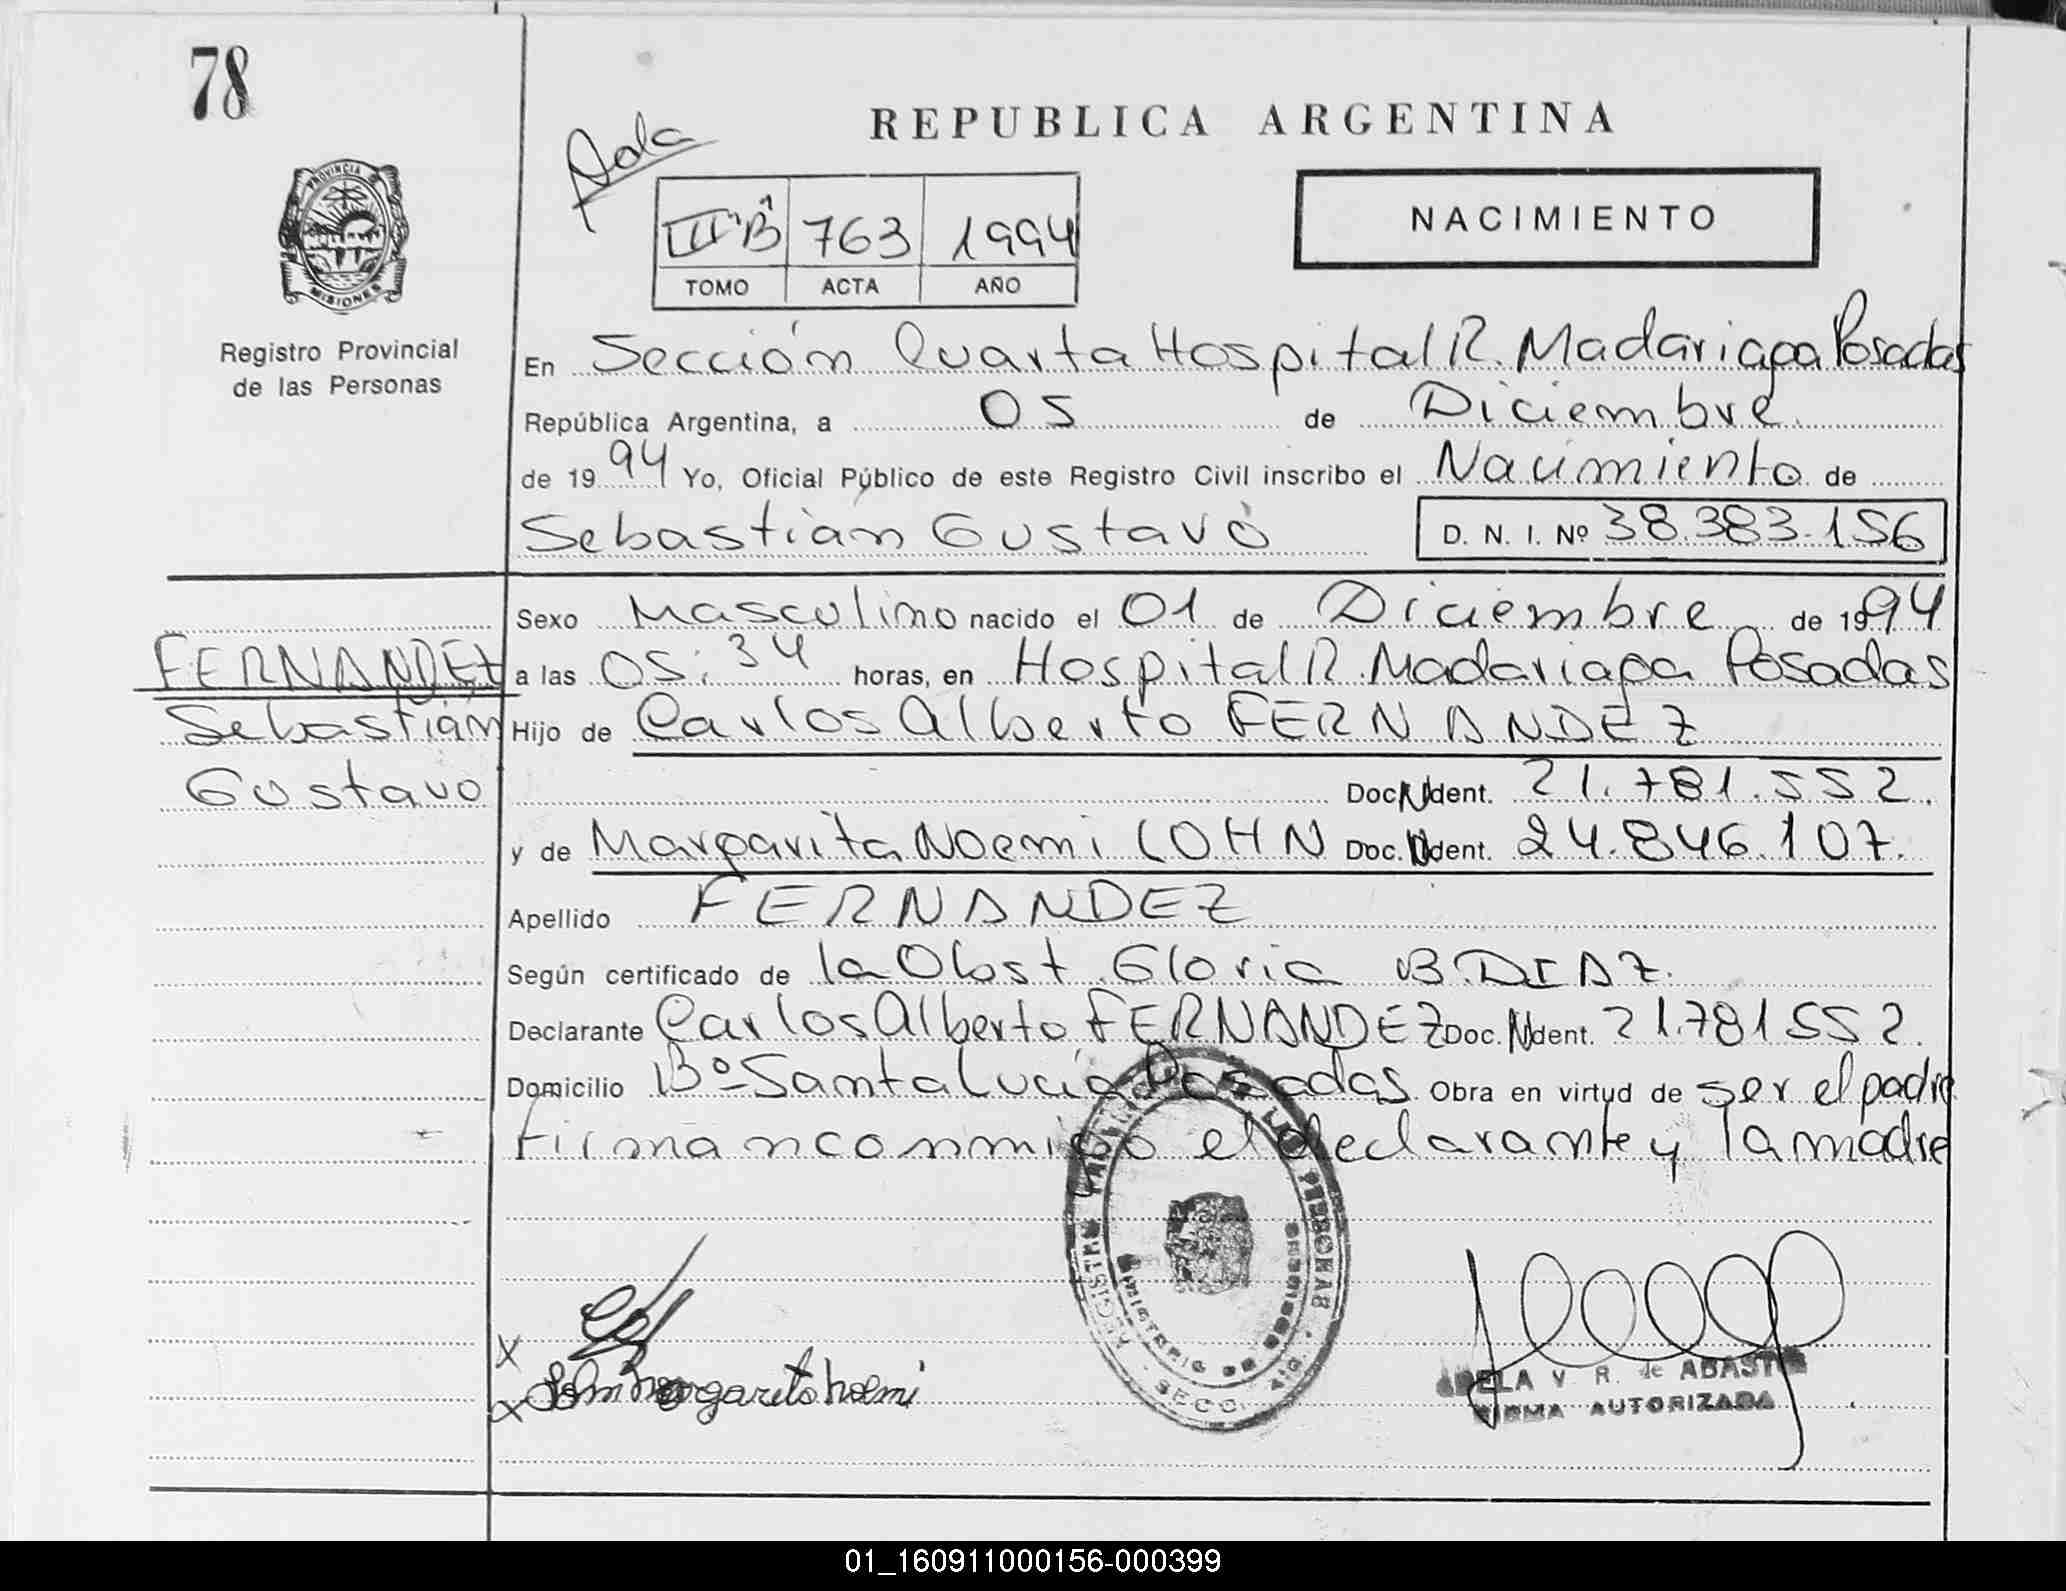 78
REPUBLICA ARGENTINA
PROVINCIA
MISIONES
Registro Provincial
de las Personas
III "B" 763 1994
TOMO ACTA AÑO
NACIMIENTO
En Sección Cuarta Hospital R. Madariaga Posadas
República Argentina, a 05 de Diciembre
de 1994 Yo, Oficial Público de este Registro Civil inscribo el Nacimiento de
Sebastián Gustavo D. N. I. Nº 38.383.156
Sexo Masculino nacido el 01 de Diciembre de 1994
FERNANDEZ
a las 05:34 horas, en Hospital R. Madariaga Posadas
Sebastián
Hijo de Carlos Alberto FERNANDEZ
Gustavo
Doc. Ident. 21.781.552.
y de Margarita Noemi COHN Doc. Ident. 24.846.107.
Apellido FERNANDEZ
Según certificado de la Obst. Gloria B. DIAZ.
Declarante Carlos Alberto FERNANDEZ Doc. Ident. 21.781552.
Domicilio Bº Santa Lucía Posadas. Obra en virtud de ser el padre
Firman conmigo el declarante y la madre
REGISTRO PROVINCIAL DE LAS PERSONAS
MINISTERIO DE GOBIERNO
SECC.
X
X Margarita Noemi
ADELA V. R. de ABASTO
FIRMA AUTORIZADA
01_160911000156-000399